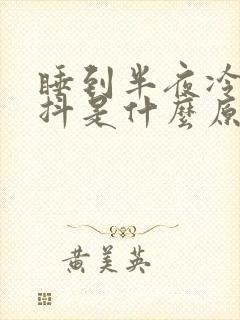 睡到半夜冷
抖是什麼原
黄美英